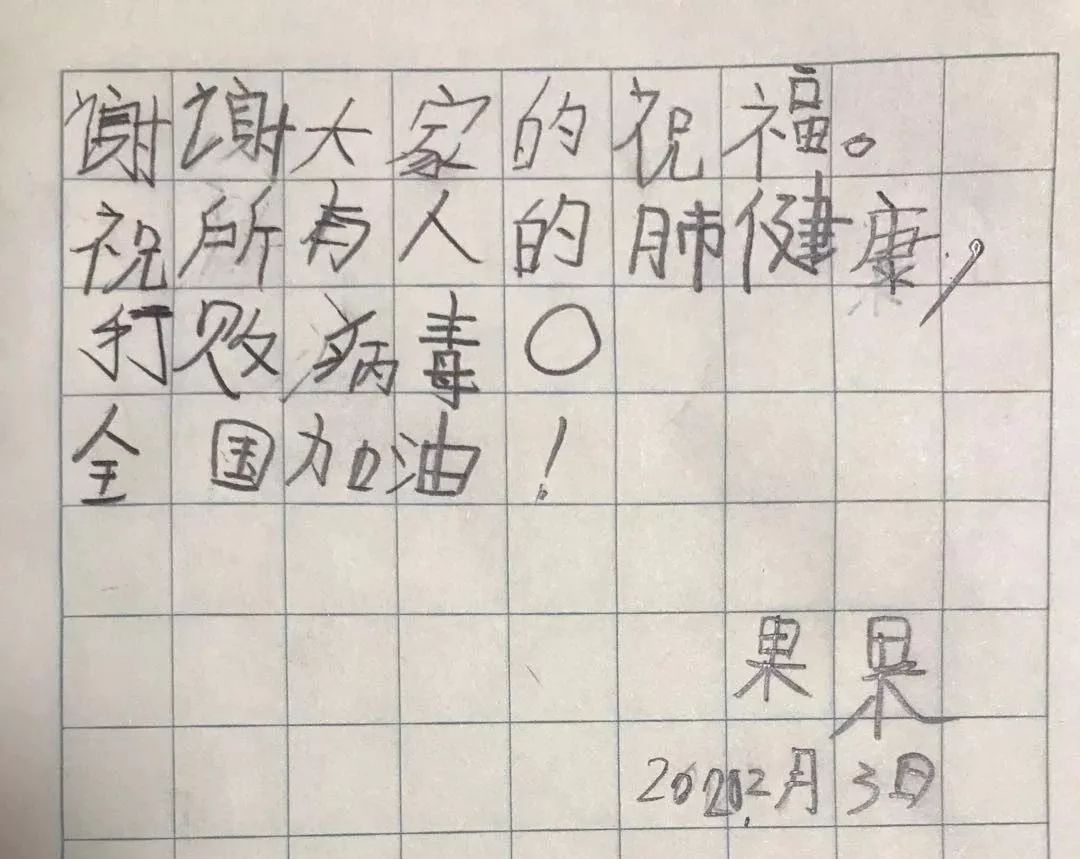 谢谢大家的祝福。
祝所有人的肺健康,
打败病毒。
全国加油!
果果
2020.2月3日